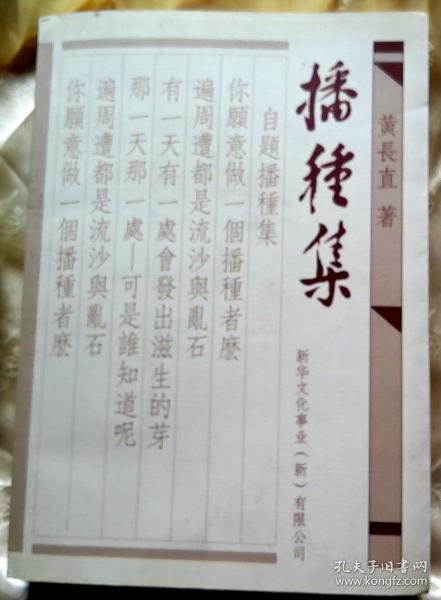 黄長直 著
播種集
新华文化事业（新）有限公司
自題播種集
你願意做一個播種者麽
遍周遭都是流沙與亂石
有一天有一處會發出滋生的芽
那一天那一處—可是誰知道呢
遍周遭都是流沙與亂石
你願意做一個播種者麽
孔夫子旧书网
www.kongfz.com